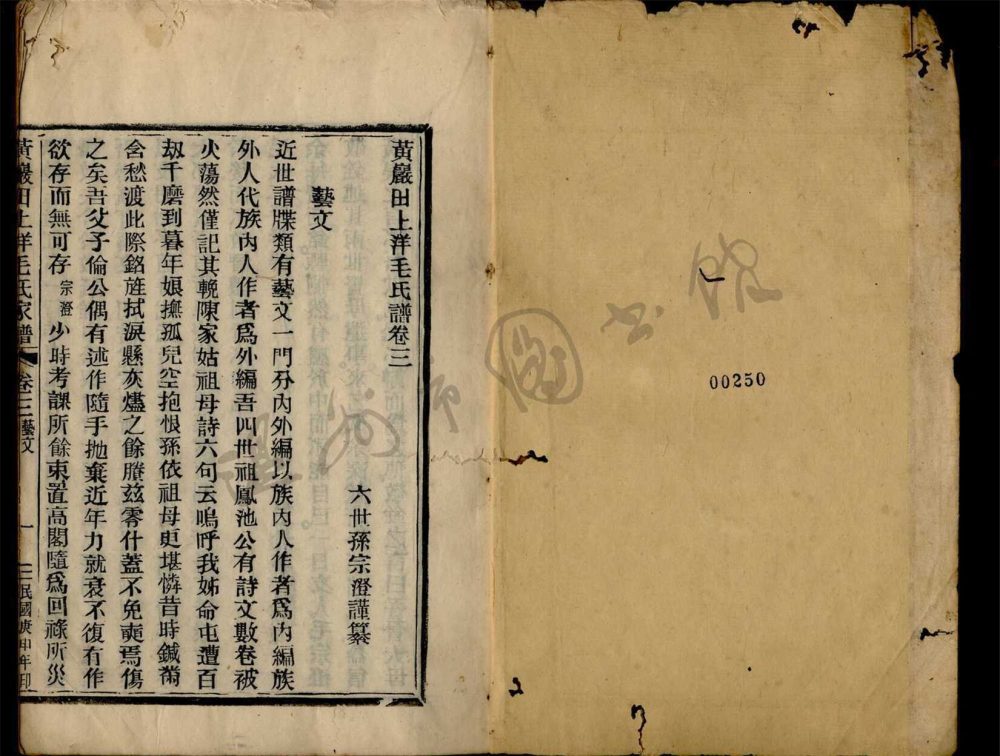 黃巖田上洋毛氏譜卷三
六世孫宗澄謹纂
藝文
近世譜牒類有藝文一門分內外編以族內人作者爲內編族
外人代族內人作者爲外編吾四世祖鳳池公有詩文數卷被
火蕩然僅記其輓陳家姑祖母詩六句云嗚呼我姊命屯遭百
劫千磨到暮年娘撫孤兒空抱恨孫依祖母更堪憐昔時鍼黹
含愁渡此際銘旌拭淚懸灰燼之餘賸茲零什蓋不免奭焉傷
之矣吾父子倫公偶有述作隨手拋棄近年力就衰不復有作
欲存而無可存宗澄少時考課所餘束置高閣隨爲回祿所災
黃巖田上洋毛氏家譜 卷三藝文 一 民國庚申年印
00250
圖書館